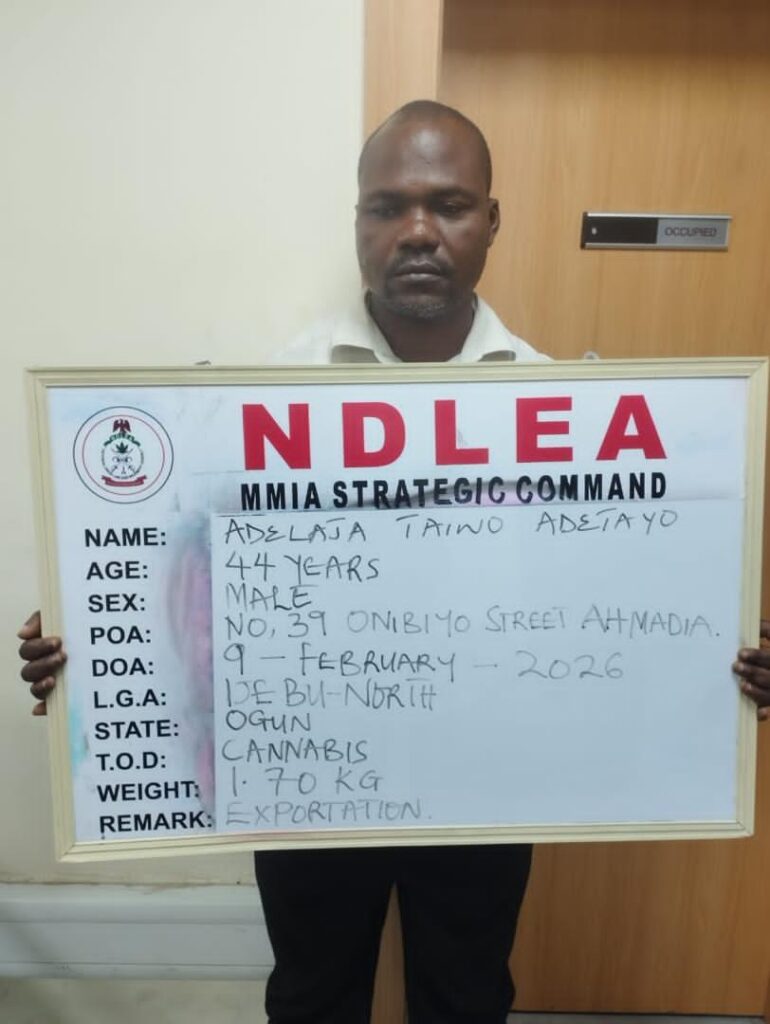 OCCUPIED
NDLEA
NDLEA
MMIA STRATEGIC COMMAND
NAME: ADELAJA TAIWO ADETAYO
AGE: 44 YEARS
SEX: MALE
POA: NO, 39 ONIBIYO STREET AHMADIA.
DOA: 9 - FEBRUARY - 2026
L.G.A: IJEBU-NORTH
STATE: OGUN
T.O.D: CANNABIS
WEIGHT: 1.70 KG
REMARK: EXPORTATION.